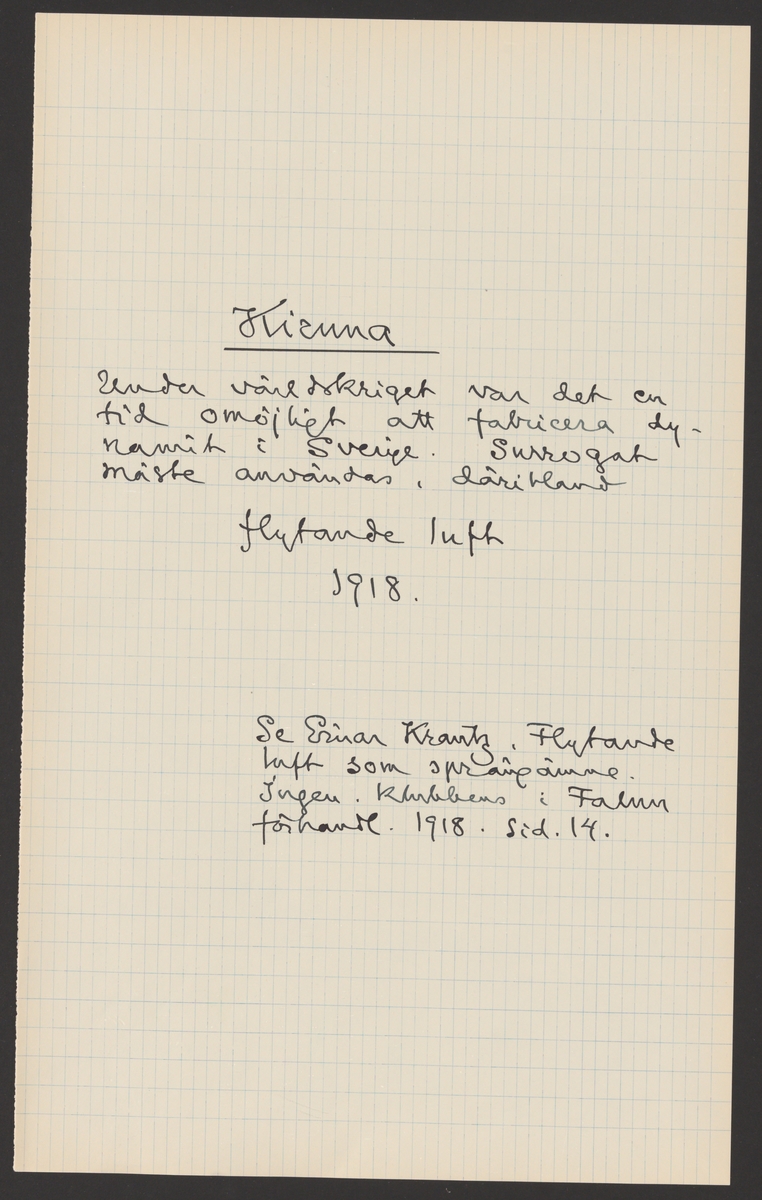 Kiruna
Under världskriget var det en
tid omöjligt att fabricera dy-
namit i Sverige. Surrogat
måste användas, däribland
flytande luft
1918.
Se Einar Krantz, Flytande
luft som sprängämne.
Ingen. klubbens i Falun
förhandl. 1918. Sid. 14.